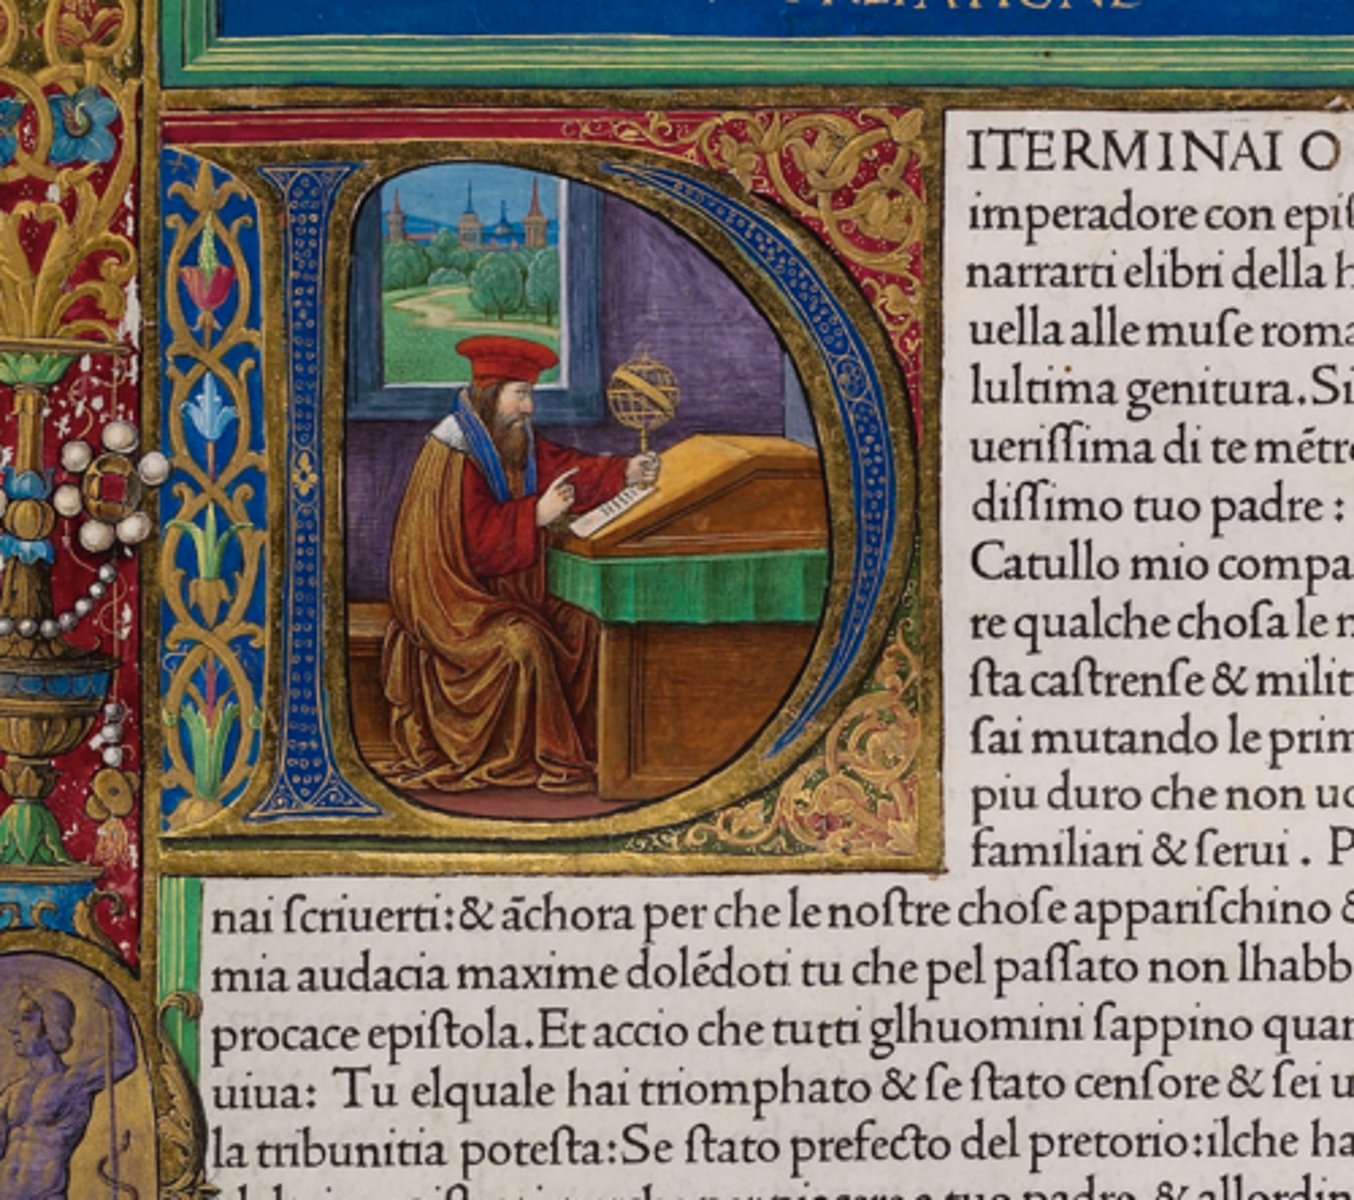 DITERMINAI O
imperadore con epiſ
narrarti elibri della h
uella alle muſe roma
lultima genitura.Si
ueriſſima di te mẽtre
diſſimo tuo padre :
Catullo mio compa
re qualche choſa le n
ſta caſtrenſe & milit
ſai mutando le prim
piu duro che non uo
familiari & ſerui . P
nai ſcriuerti:& ãchora per che le noſtre choſe appariſchino &
mia audacia maxime dolẽdoti tu che pel paſſato non lhabb
procace epiſtola.Et accio che tutti glhuomini ſappino quan
uiua: Tu elquale hai triomphato & ſe ſtato cenſore & ſei u
la tribunitia poteſta:Se ſtato prefecto del pretorio:ilche ha